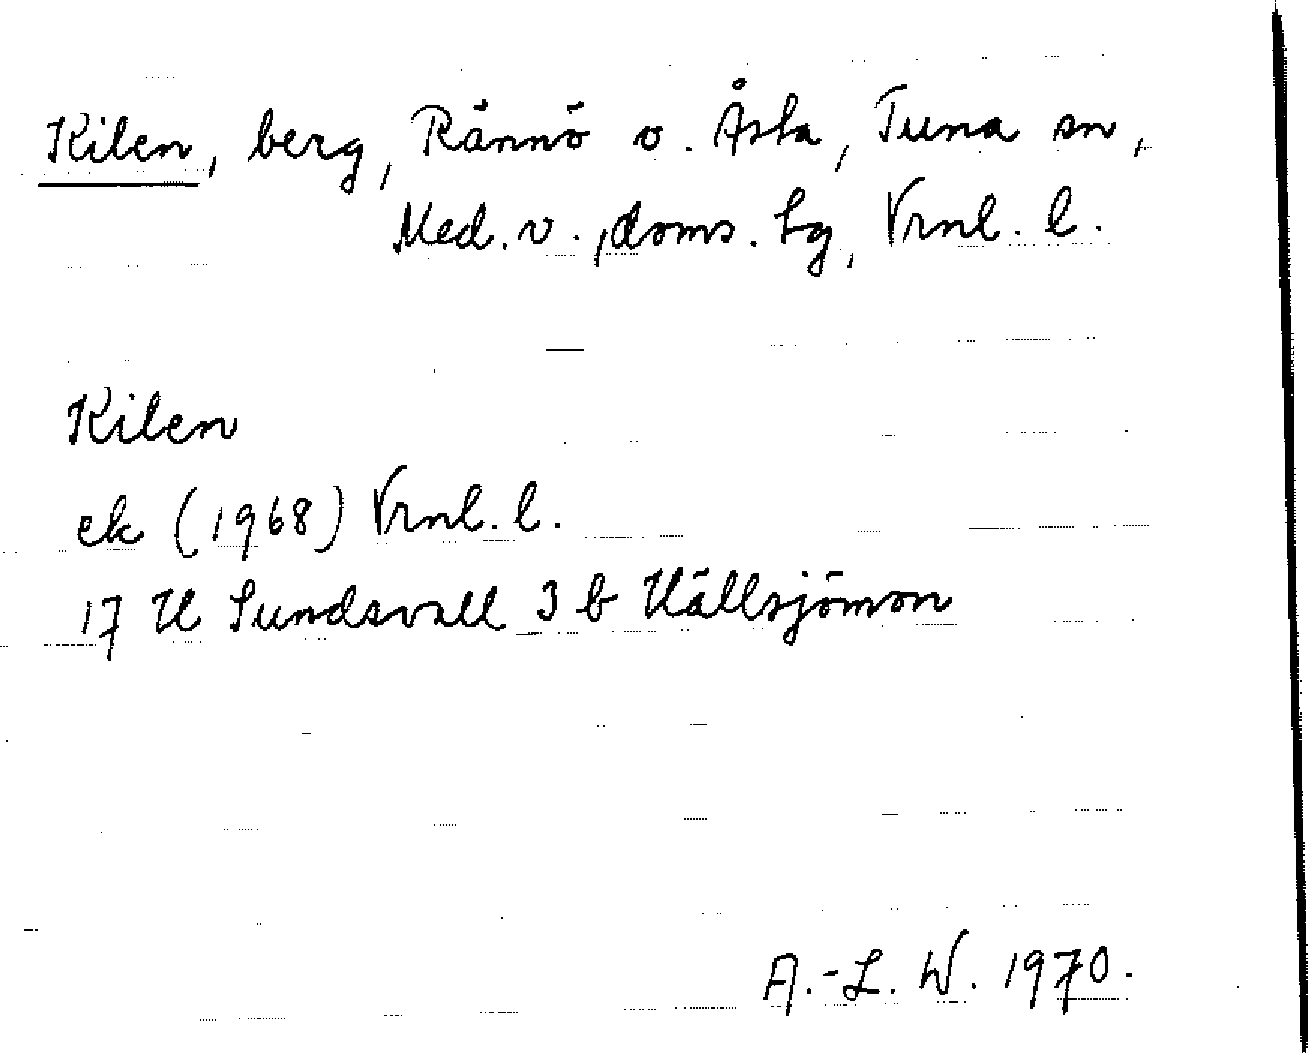 Kilen, berg, Rännö o. Åsta, Tuna sn,
Med. v., doms. lg, Vrnl. l.
Kilen
ek (1968) Vrnl. l.
17 H Sundsvall 3 b Hällsjömon
A.-L. W. 1970.